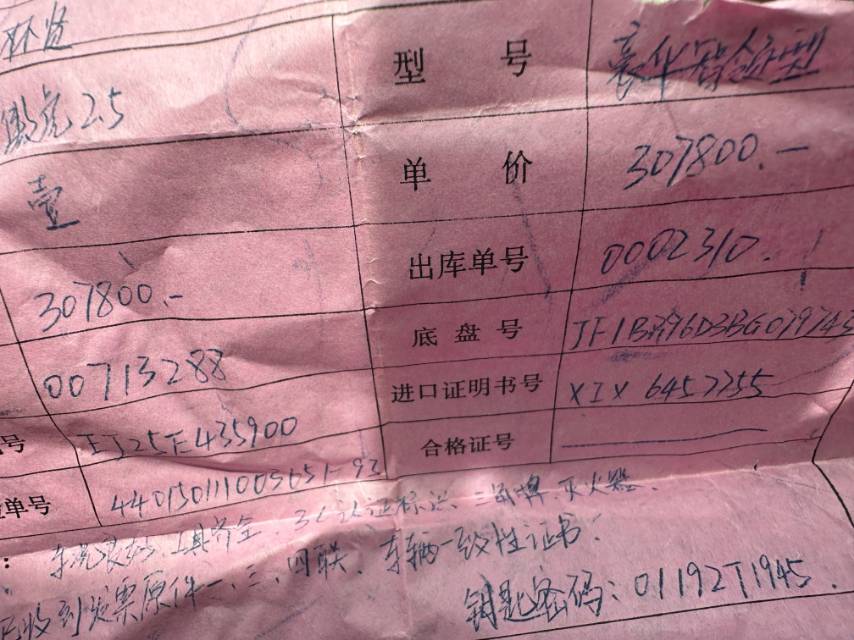 型号 豪华智能型
傲虎2.5
壹 单价 307800.—
307800.— 出库单号 0002310.
00713288 底盘号
进口证明书号 XIX 6457255
号 EJ25E435900 合格证号 ——
单号
车况良好、工具齐全、3C认证标识、三角牌、灭火器.
已收到发票原件一、三、四联、车辆一致性证书.
钥匙密码：01192T1945.